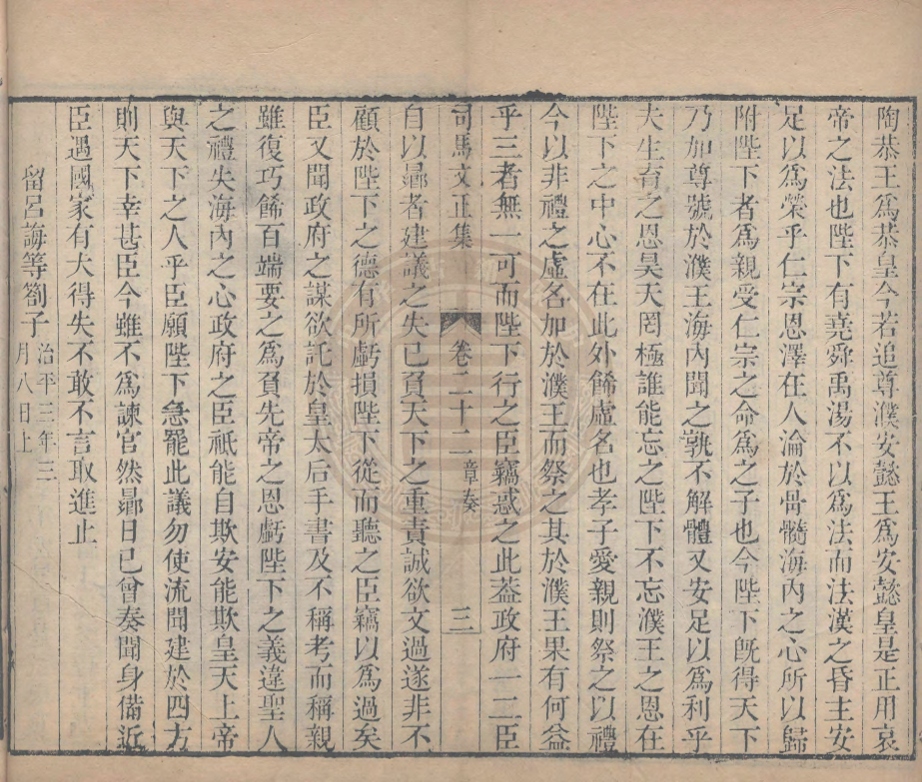 陶恭王爲恭皇今若追尊濮安懿王爲安懿皇是正用哀
帝之法也陛下有堯舜禹湯不以爲法而法漢之昏主安
足以爲榮乎仁宗恩澤在人淪於骨髓海內之心所以歸
附陛下者爲親受仁宗之命爲之子也今陛下旣得天下
乃加尊號於濮王海內聞之孰不解體又安足以爲利乎
夫生育之恩昊天罔極誰能忘之陛下不忘濮王之恩在
陛下之中心不在此外飾虛名也孝子愛親則祭之以禮
今以非禮之虛名加於濮王而祭之其於濮王果有何益
乎三者無一可而陛下行之臣竊惑之此葢政府一二臣
司馬文正集 卷二十二 章奏 三
自以曏者建議之失已負天下之重責誠欲文過遂非不
顧於陛下之德有所虧損陛下從而聽之臣竊以爲過矣
臣又聞政府之謀欲託於皇太后手書及不稱考而稱親
雖復巧飾百端要之爲負先帝之恩虧陛下之義違聖人
之禮失海內之心政府之臣祇能自欺安能欺皇天上帝
與天下之人乎臣願陛下急罷此議勿使流聞建於四方
則天下幸甚臣今雖不爲諫官然曏日已曾奏聞身備近
臣遇國家有大得失不敢不言取進止
留呂誨等劄子 治平三年三月八日上